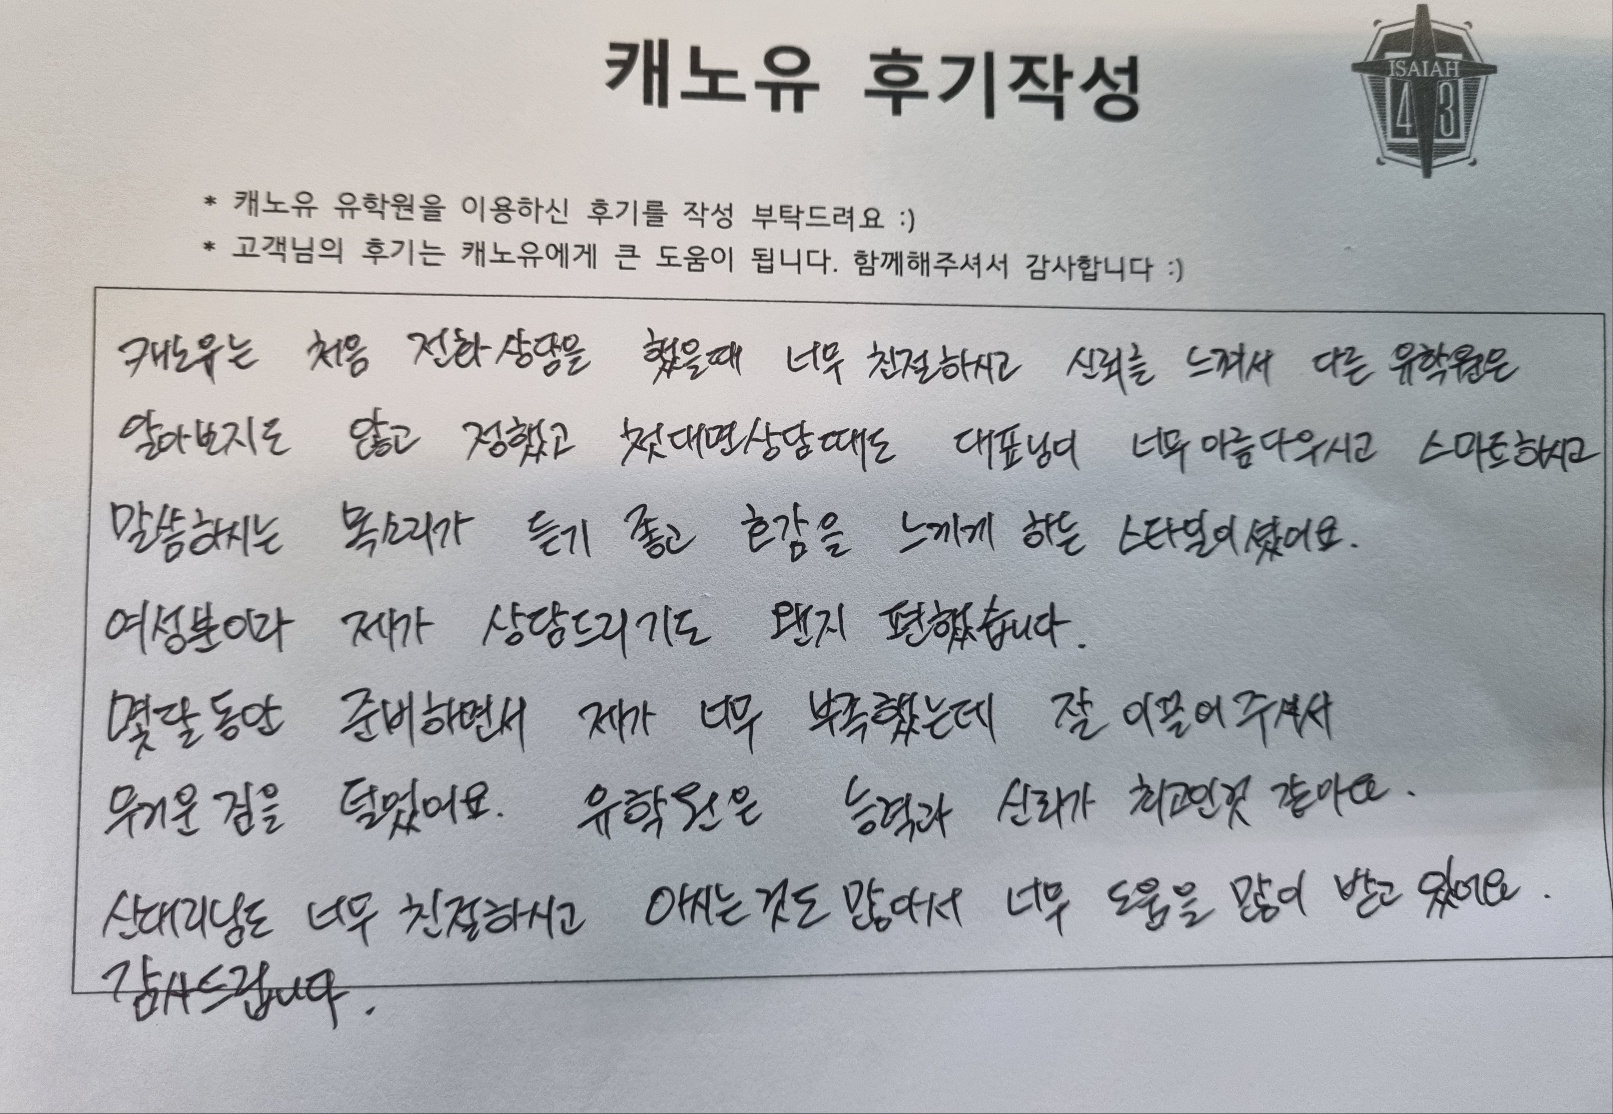 캐노유 후기작성
ISAIAH
43
* 캐노유 유학원을 이용하신 후기를 작성 부탁드려요 :)
* 고객님의 후기는 캐노유에게 큰 도움이 됩니다. 함께해주셔서 감사합니다 :)
캐노유는 처음 전화상담을 했을때 너무 친절하시고 신뢰를 느껴서 다른 유학원은
알아보지도 않고 정했고 첫대면상담때도 대표님이 너무 아름다우시고 스마트하시고
말씀하시는 목소리가 듣기 좋고 호감을 느끼게 하는 스타일이셨어요.
여성분이라 제가 상담드리기도 왠지 편했습니다.
몇달동안 준비하면서 제가 너무 부족했는데 잘 이끌어주셔서
무거운 짐을 덜었어요. 유학원은 능력과 신뢰가 최고인것 같아요.
신대리님도 너무 친절하시고 아시는것도 많아서 너무 도움을 많이 받고 있어요.
감사드립니다.